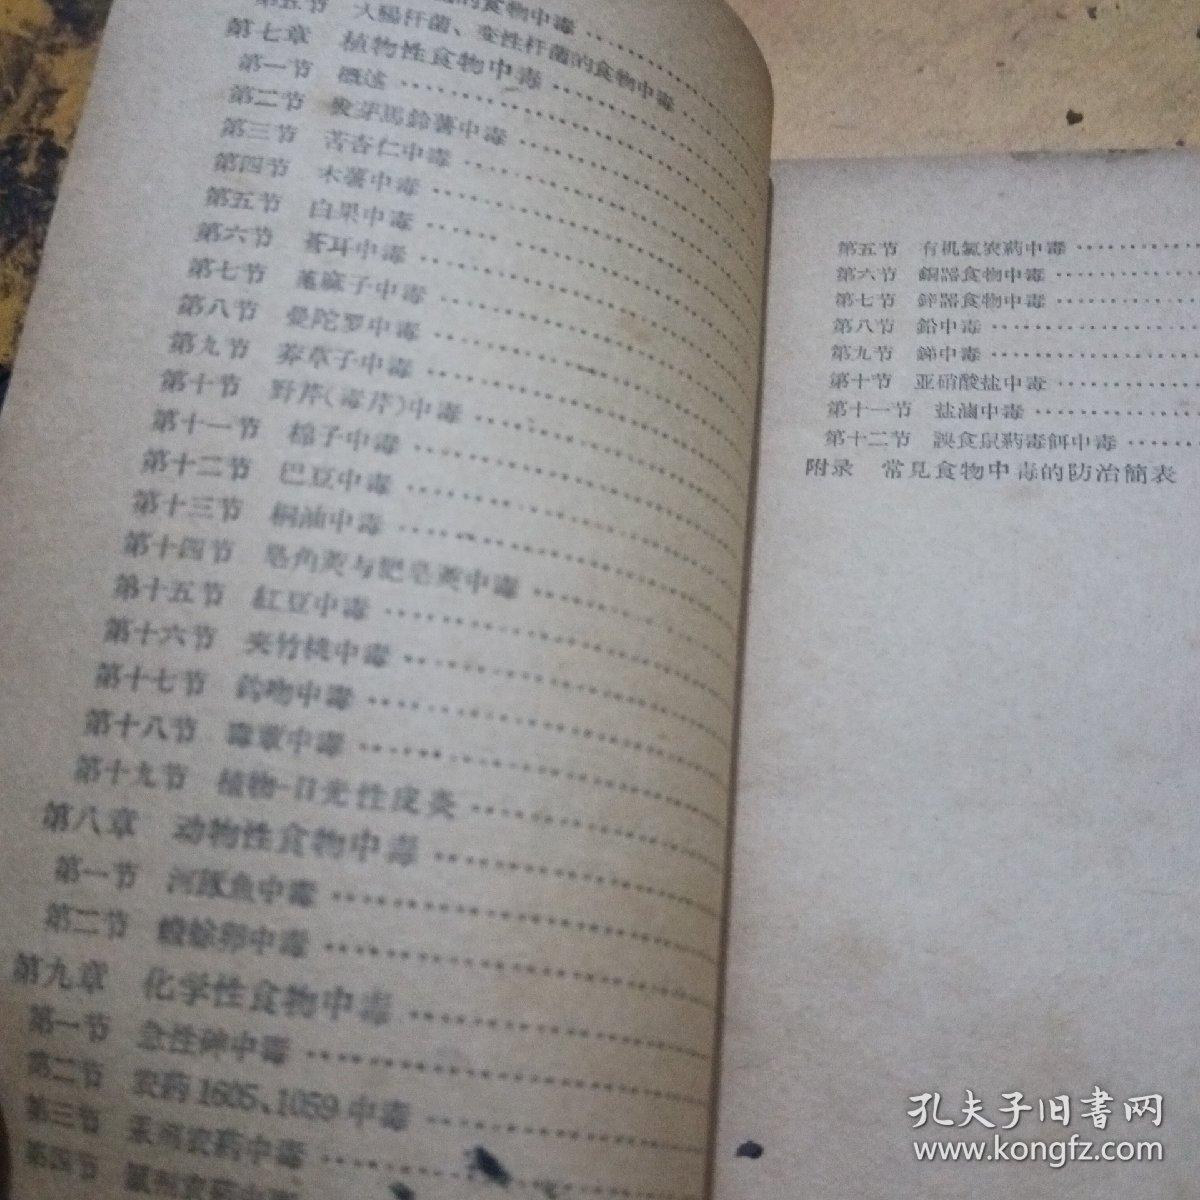 的食物中毒
第五节 大腸杆菌、变性杆菌的食物中毒
第七章 植物性食物中毒
第一节 概述
第二节 发芽馬鈴薯中毒
第三节 苦杏仁中毒
第四节 木薯中毒
第五节 白果中毒
第六节 蒼耳中毒
第七节 蓖麻子中毒
第八节 曼陀罗中毒
第九节 莽草子中毒
第十节 野芹(毒芹)中毒
第十一节 棉子中毒
第十二节 巴豆中毒
第十三节 桐油中毒
第十四节 皂角莢与肥皂莢中毒
第十五节 紅豆中毒
第十六节 夹竹桃中毒
第十七节 鈎吻中毒
第十八节 毒蕈中毒
第十九节 植物-日光性皮炎
第八章 动物性食物中毒
第一节 河豚魚中毒
第二节 蟾蜍卵中毒
第九章 化学性食物中毒
第一节 急性砷中毒
第二节 农药1605、1059中毒
第三节 农药中毒
第四节
第五节 有机氯农药中毒
第六节 銅器食物中毒
第七节 鋅器食物中毒
第八节 鉛中毒
第九节 銻中毒
第十节 亚硝酸盐中毒
第十一节 盐滷中毒
第十二节 誤食鼠药毒餌中毒
附录 常見食物中毒的防治簡表
孔夫子旧书网
www.kongfz.com